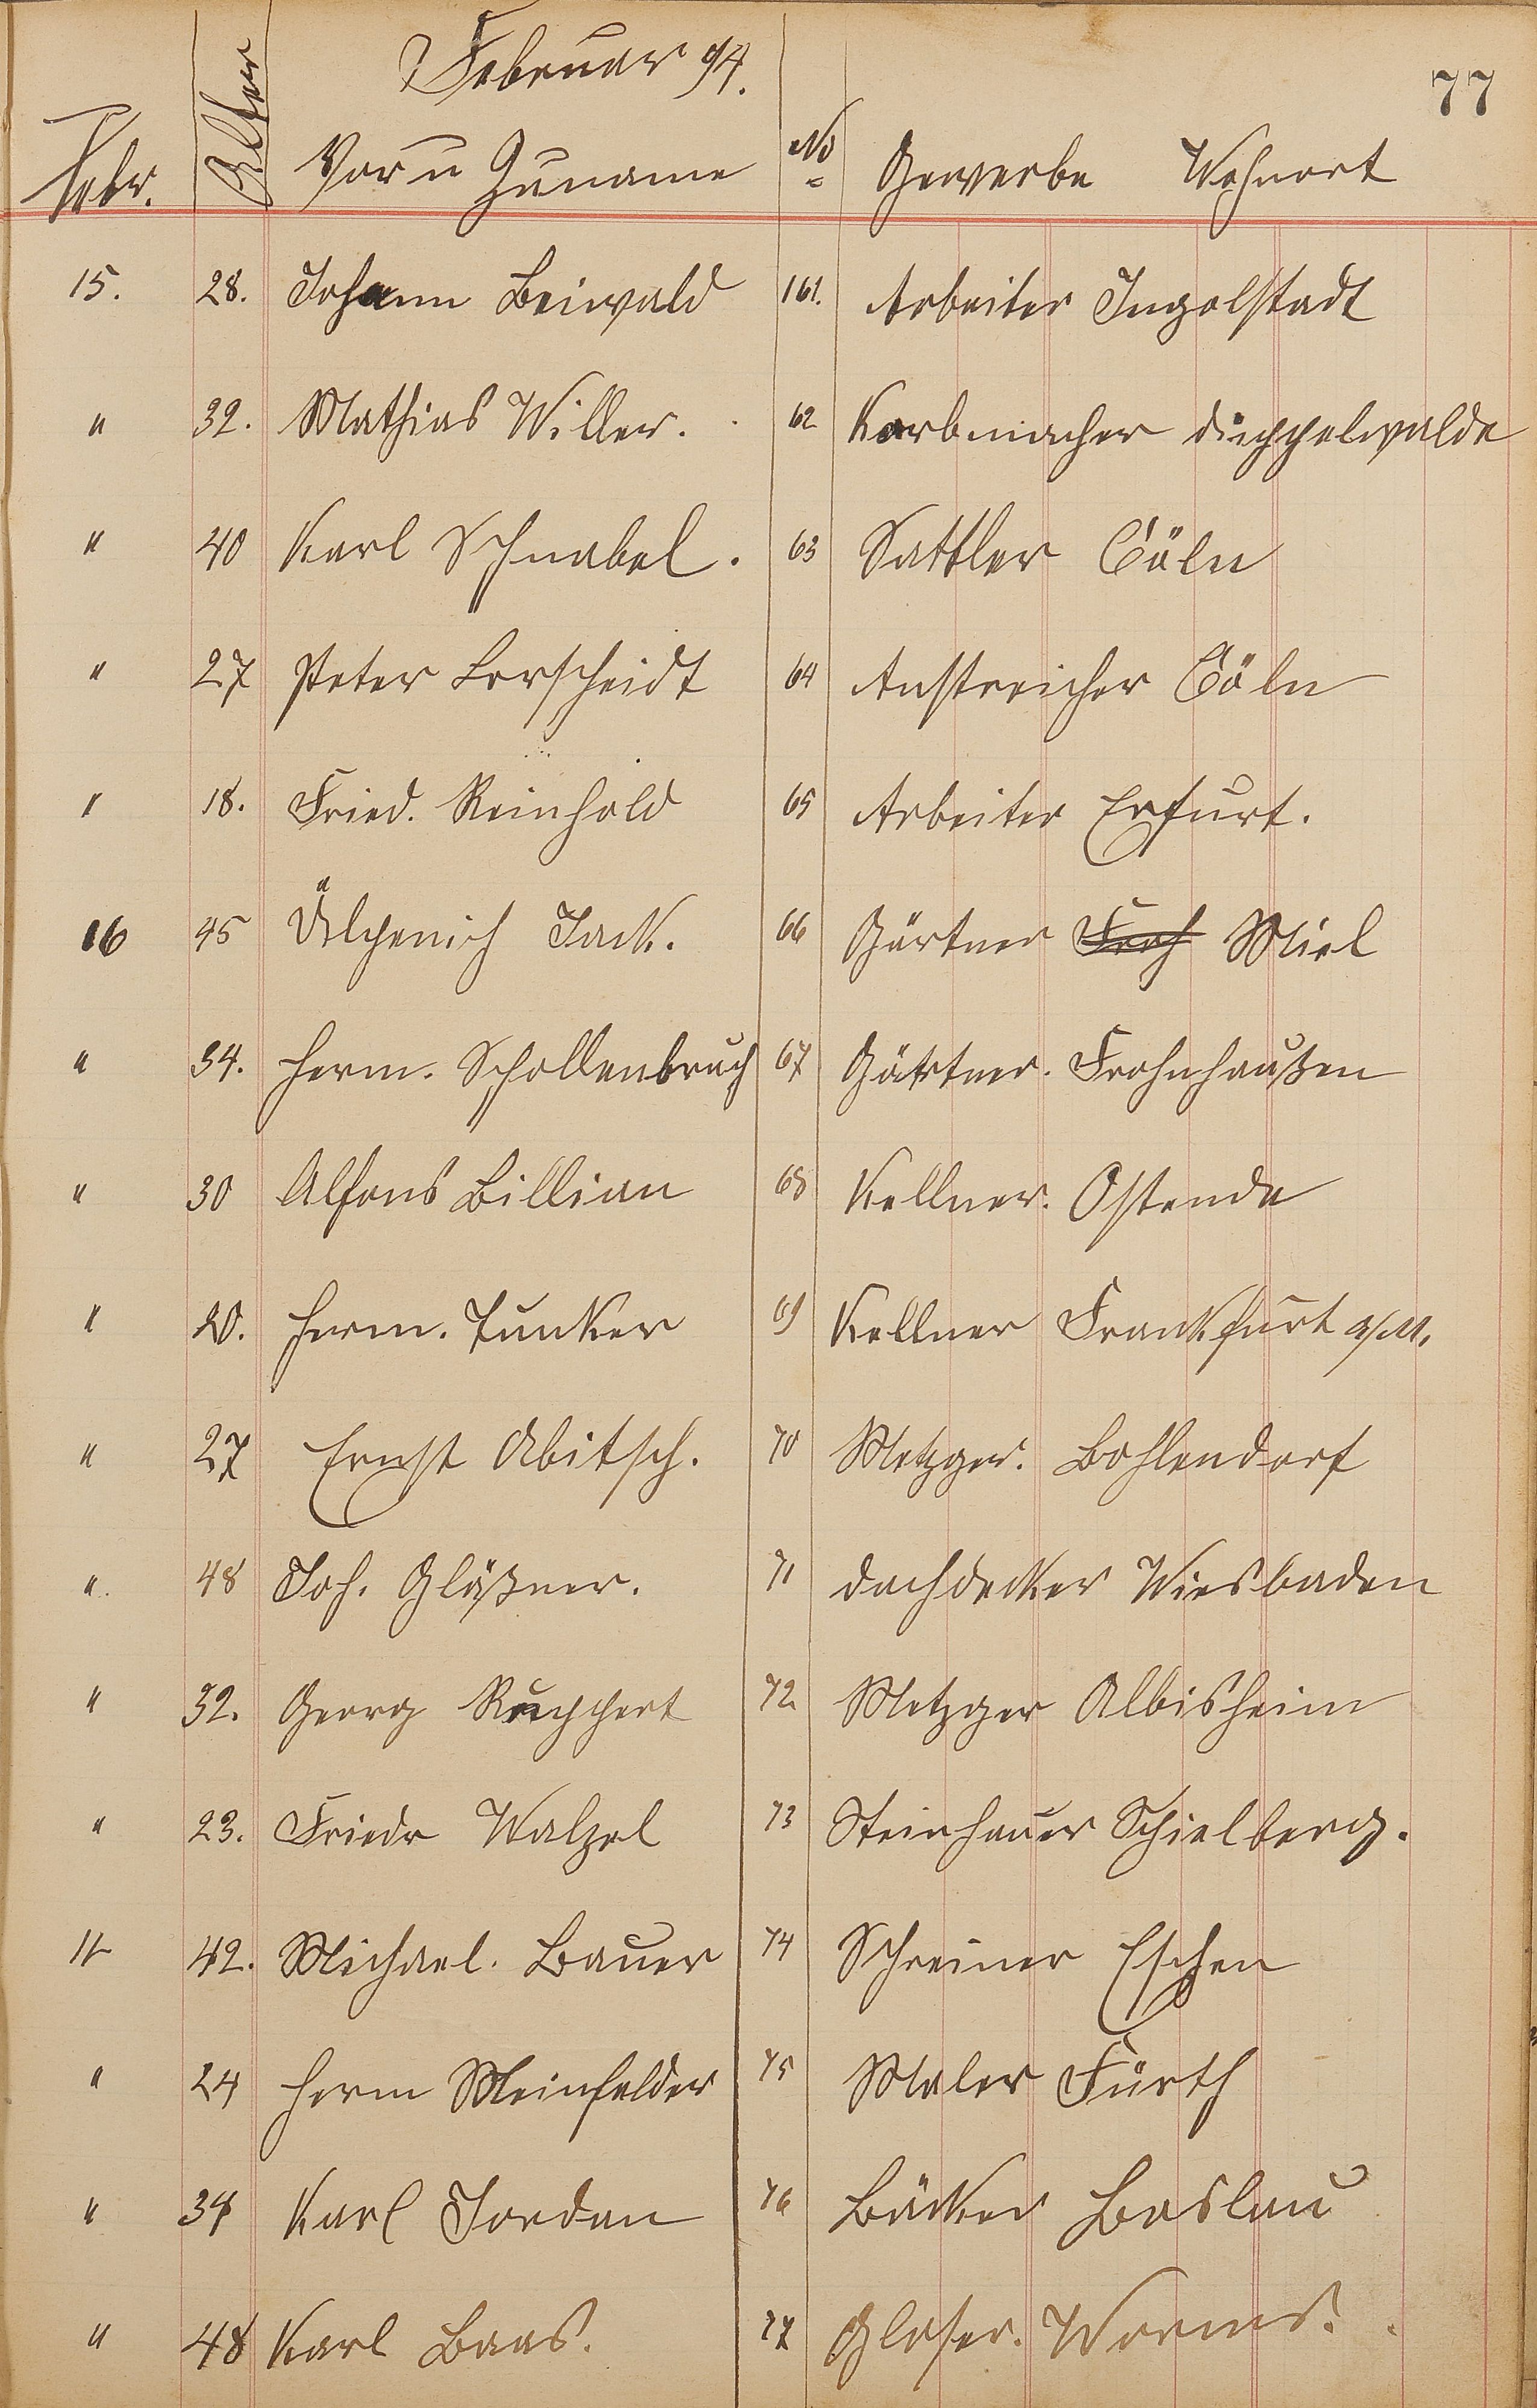 Februar 94.
77
Febr. Alter Vor u Zuname No Gewerbe Wohnort
15. 28. Johann Beiwald 161. Arbeiter Ingolstadt
" 32. Mathias Willer. 62 Korbmacher Dippelwalde
" 40 Karl Schnabel. 63 Sattler Cöln
" 27 Peter Lorscheidt 64 Anstreicher Cöln
" 18. Fried. Reinhold 65 Arbeiter Erfurt.
16 45 Ülpenich Jack. 66 Gärtner Froh Miel
" 34. Herm. Schollenbruch 67 Gärtner. Frohnhaußen
" 30 Alfons Billian 68 Kellner. Ostende
" 20. Herm. Junker 69 Kellner Frankfurt a/M.
" 27 Ernst Abitsch. 70 Metzger. Bohlendorf
" 48 Joh. Gläßner. 71 Dachdecker Wiesbaden
" 32. Georg Ruppert 72 Metzger Albisheim
" 23. Friedr Walzel 73 Steinhauer Schielberg.
" 42. Michael. Bauer 74 Schreiner Eschen
" 24 Herm Meinfelder 75 Maler Fürth
" 34 Karl Jordan 76 Bäcker Boslau
" 48 Karl Baas. 77 Glaser. Worms.